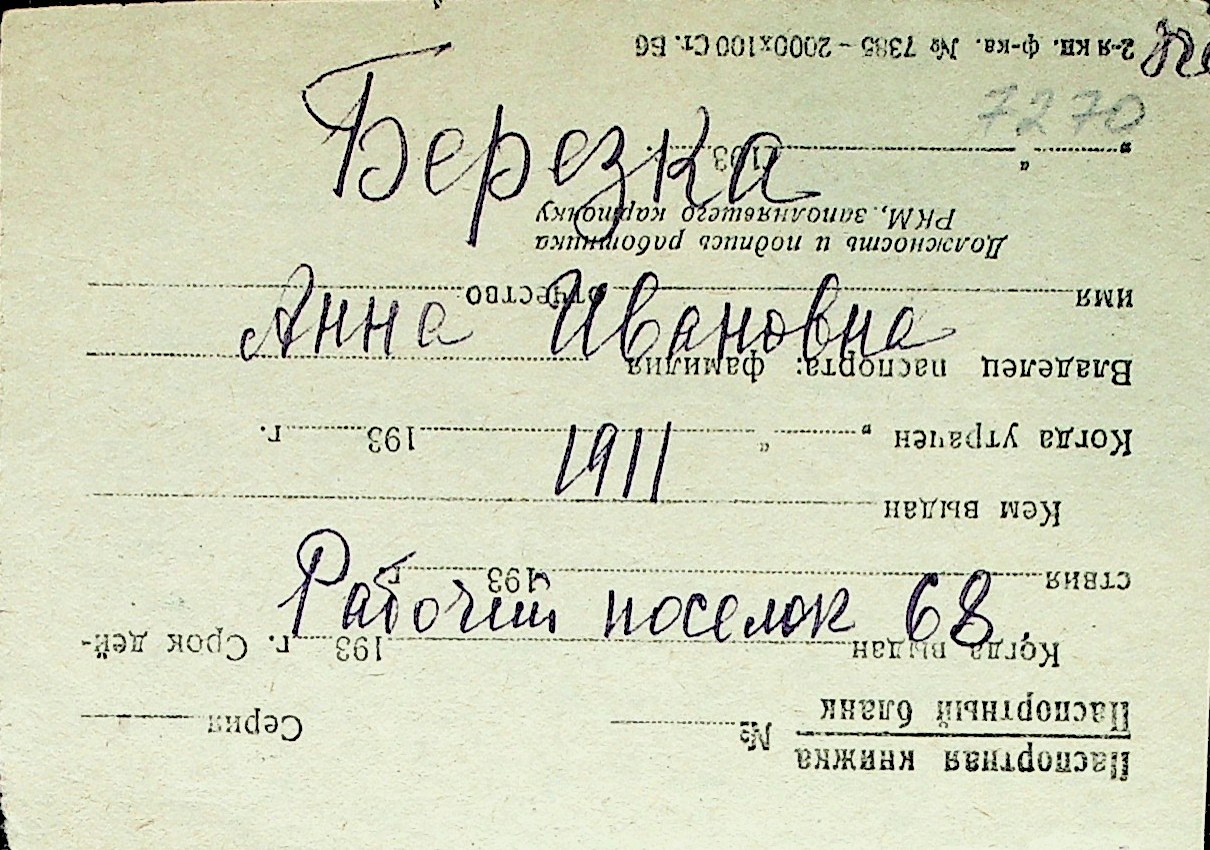 Березка
Анна Ивановна
1911
Рабочий поселок 68.
7270
Паспортная книжка
Паспортный бланк № Серия
Когда выдан 193 г. Срок дей-
ствия 193 г.
Кем выдан
Когда утрачен „ “ 193 г.
Владелец паспорта: фамилия
имя отчество
Должность и подпись работника
РКМ, заполнявшего карточку
„ “ 193 г.
2-я кн. ф-ка. № 7385 – 2000х100 Ст. Б6